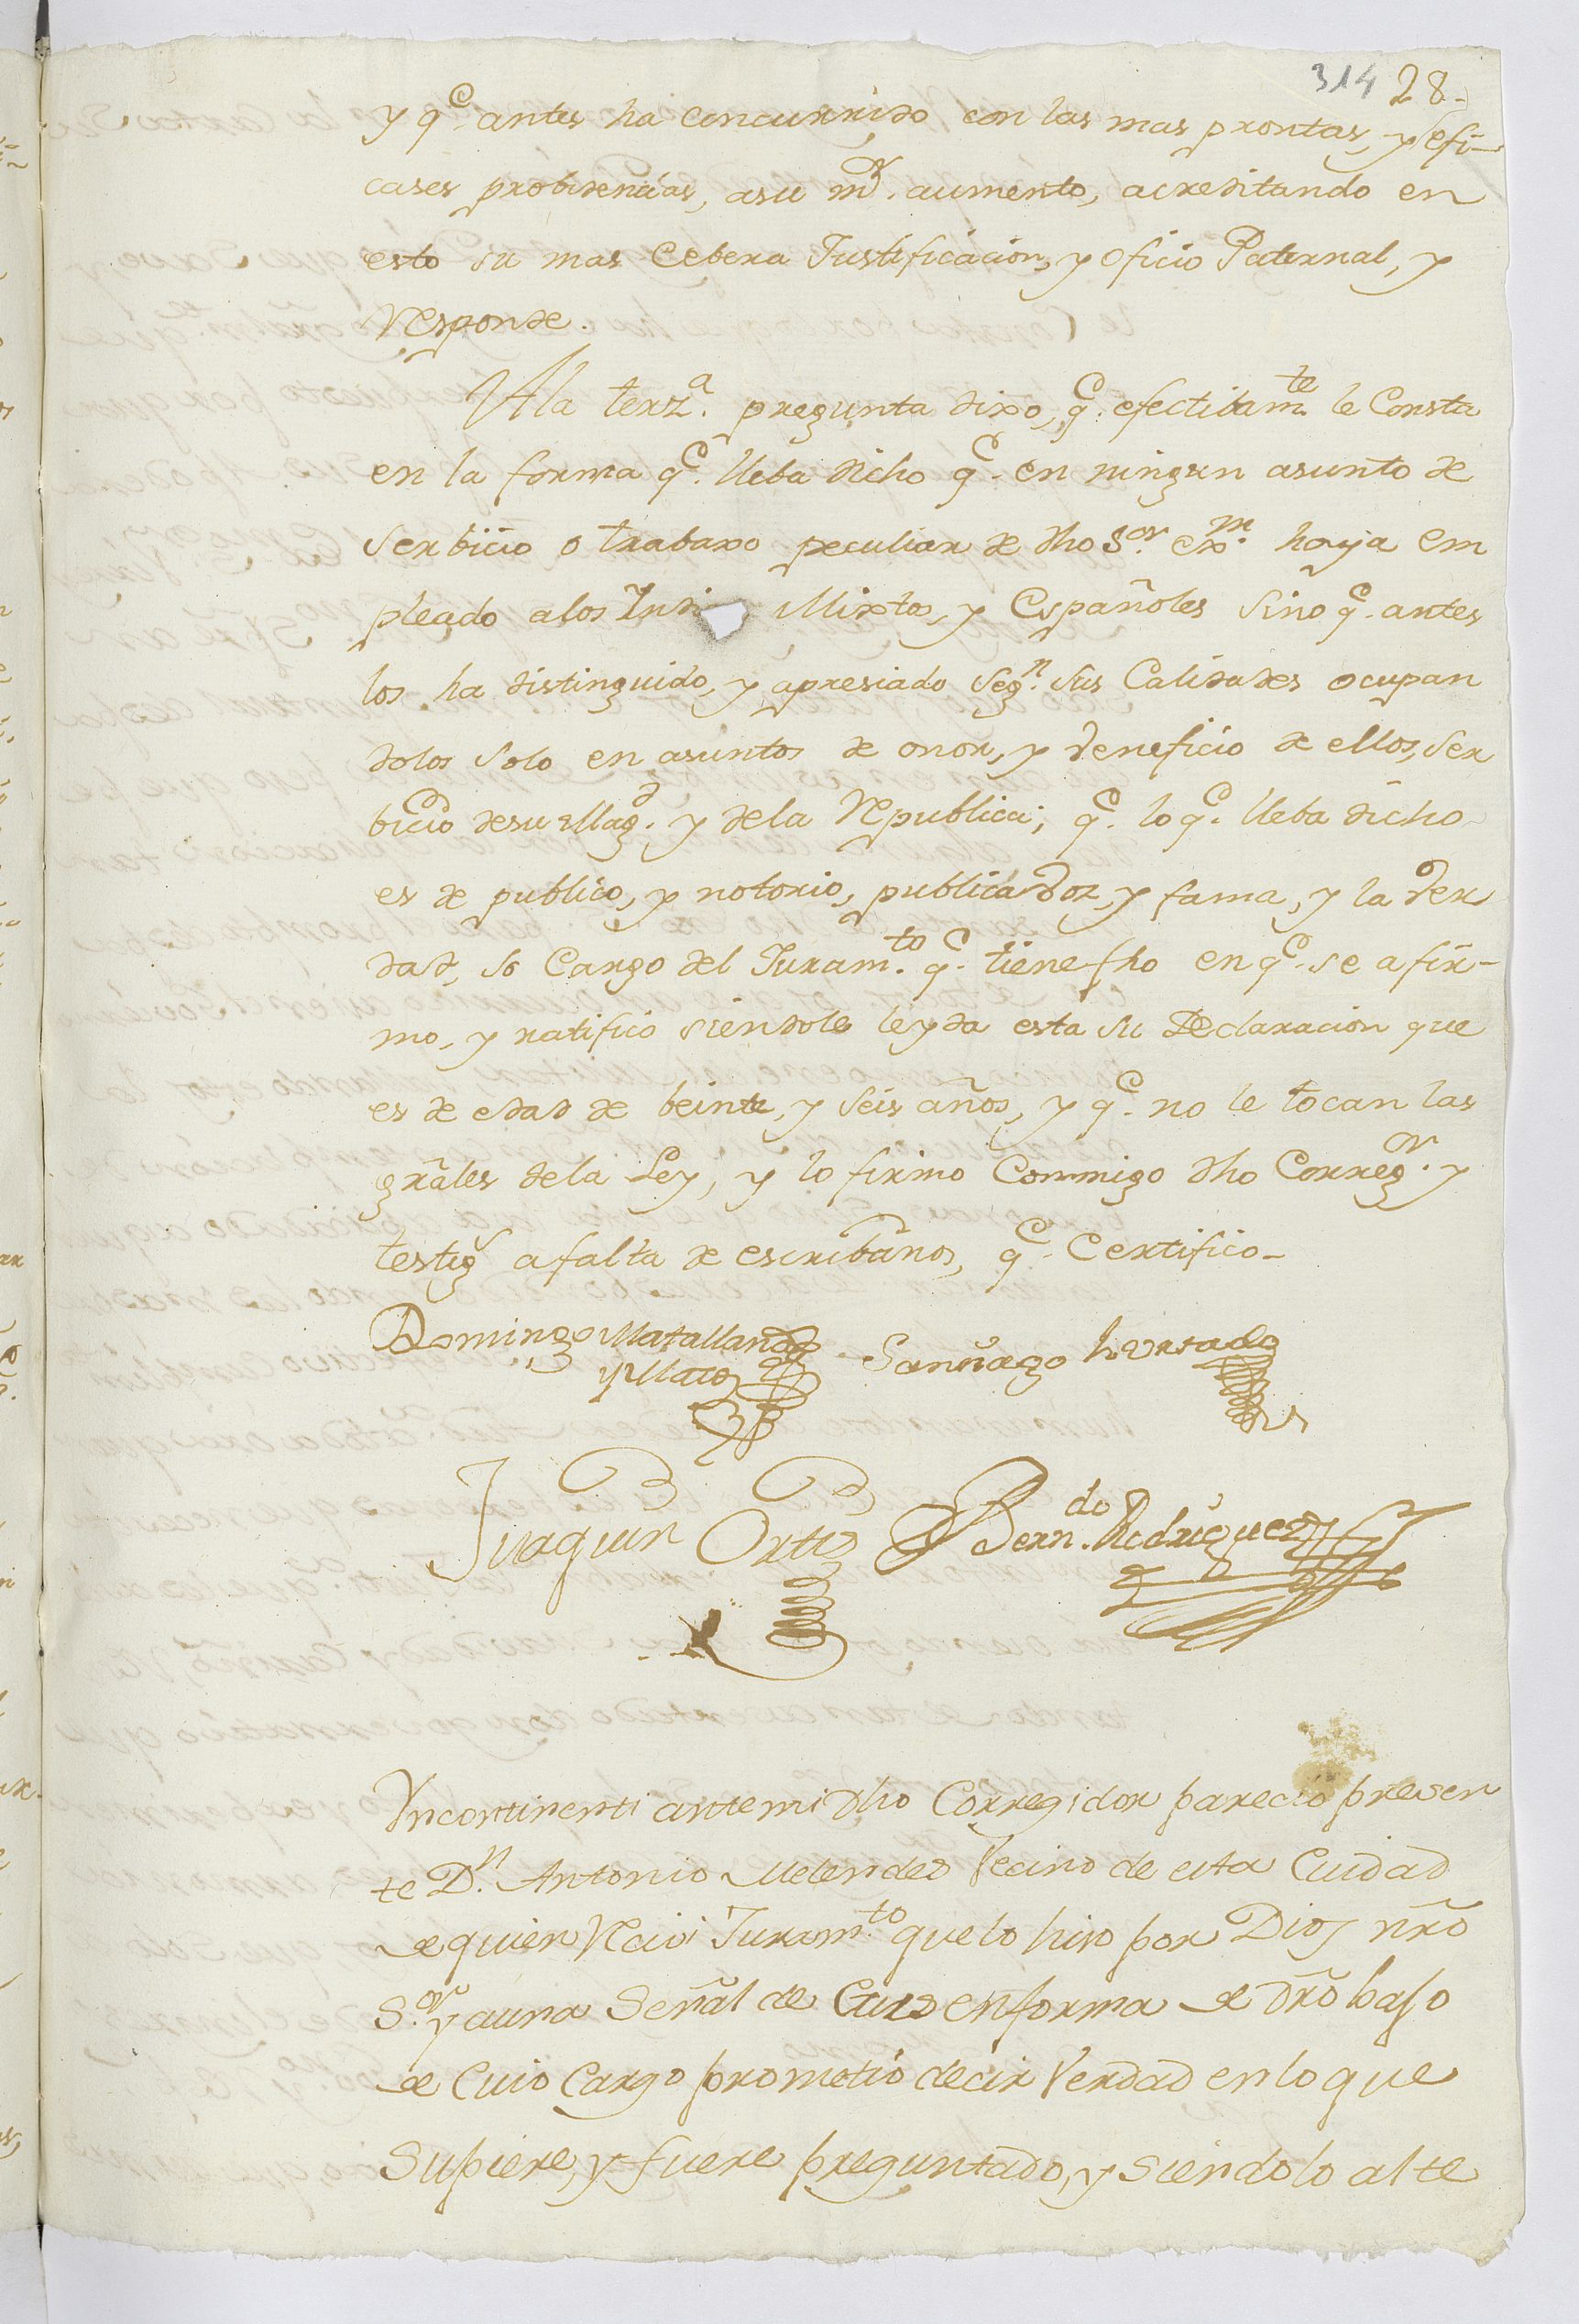 314 28-
y q.e antes ha concurrido con las mas prontas, y efi-
cases probidencias, asu m.r aumento, acreditando en
esto su mas Cebera Justificacion, y oficio Paternal, y
responde.
Ala terz.a pregunta dixo, q.e efectibam.te le Consta
en la forma q.e lleba dicho q.e en ningun asunto de
Serbicio o trabaxo peculiar de dho S.or ex.mo haya em
pleado a los Indi Mixtos, y Españoles Sino q.e antes
los ha distinguido, y apresiado Seg.n sus Calidades ocupan
dolos Solo en asuntos de onor, y veneficio de ellos, Ser
bicio desu Mag.d y dela Republica; q.e lo q.e lleba dicho
es de publico, y notorio, publica Voz, y fama, y la Ver
dad, so Cargo del Juram.to q.e tiene fho en q.e se afir-
mo, y ratifico siendole leyda esta su Declaracion que
es de edad de beinte, y seis años, y q.e no le tocan las
grãles dela Ley, y lo firmo Commigo dho Correg.or y
testig.s a falta de escribanos, q.e Certifico-
Domingo Matallana
y Mateo
Santiago hurtado
Juaquin Ortiz
Bern.do Rodriguez
Yncontinenti ante mi dho Corregidor parecio presen
te D.n Antonio Melendes Vecino de esta Cuidad
de quien Recivi Juram.to que lo hiso por Dios nr̃o
S.or y auna Señal de Crus en forma de dr̃o bajo
de Cuio Cargo prometio decir Verdad en lo que
Supiere, y fuere preguntado, y siendolo al te